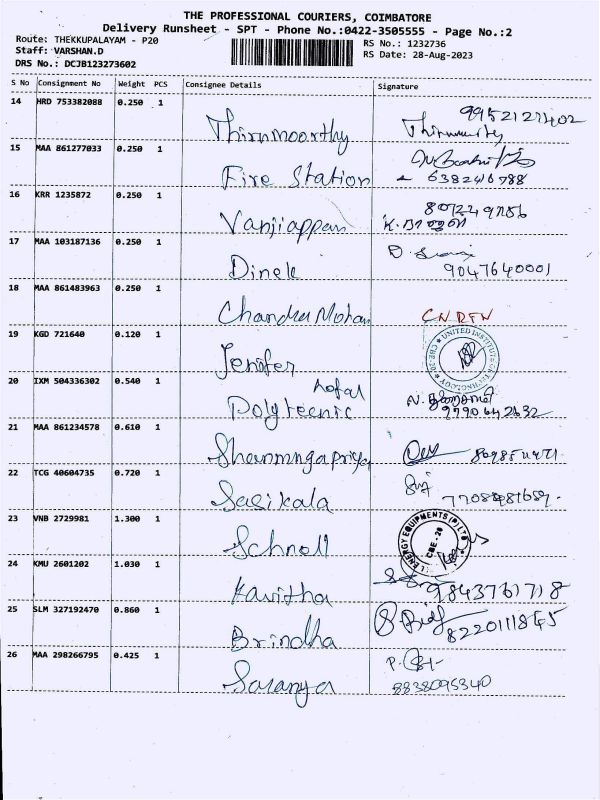 THE PROFESSIONAL COURIERS, COIMBATORE
Delivery Runsheet - SPT - Phone No.:0422-3505555 - Page No.:2
Route: THEKKUPALAYAM - P20
Staff: VARSHAN.D
DRS No.: DCJB123273602
RS No.: 1232736
RS Date: 28-Aug-2023
S No Consignment No Weight PCS Consignee Details Signature
14 HRD 753382088 0.250 1 Thirumoorthy
15 MAA 861277033 0.250 1 Fire Station
16 KRR 1235872 0.250 1 Vanjiappan
17 MAA 103187136 0.250 1 Dinek 9047640001
18 MAA 861483963 0.250 1 Chandra Mohan
19 KGD 721640 0.120 1 Jenifer
20 IXM 504336302 0.540 1 Polyteenic
21 MAA 861234578 0.610 1 Shanmugapriya
22 TCG 40604735 0.720 1 Sasikala
23 VNB 2729981 1.300 1 Schnell
24 KMU 2601202 1.030 1 Kavitha 9843761718
25 SLM 327192470 0.860 1 Brindha
26 MAA 298266795 0.425 1 Saranya 8838095340